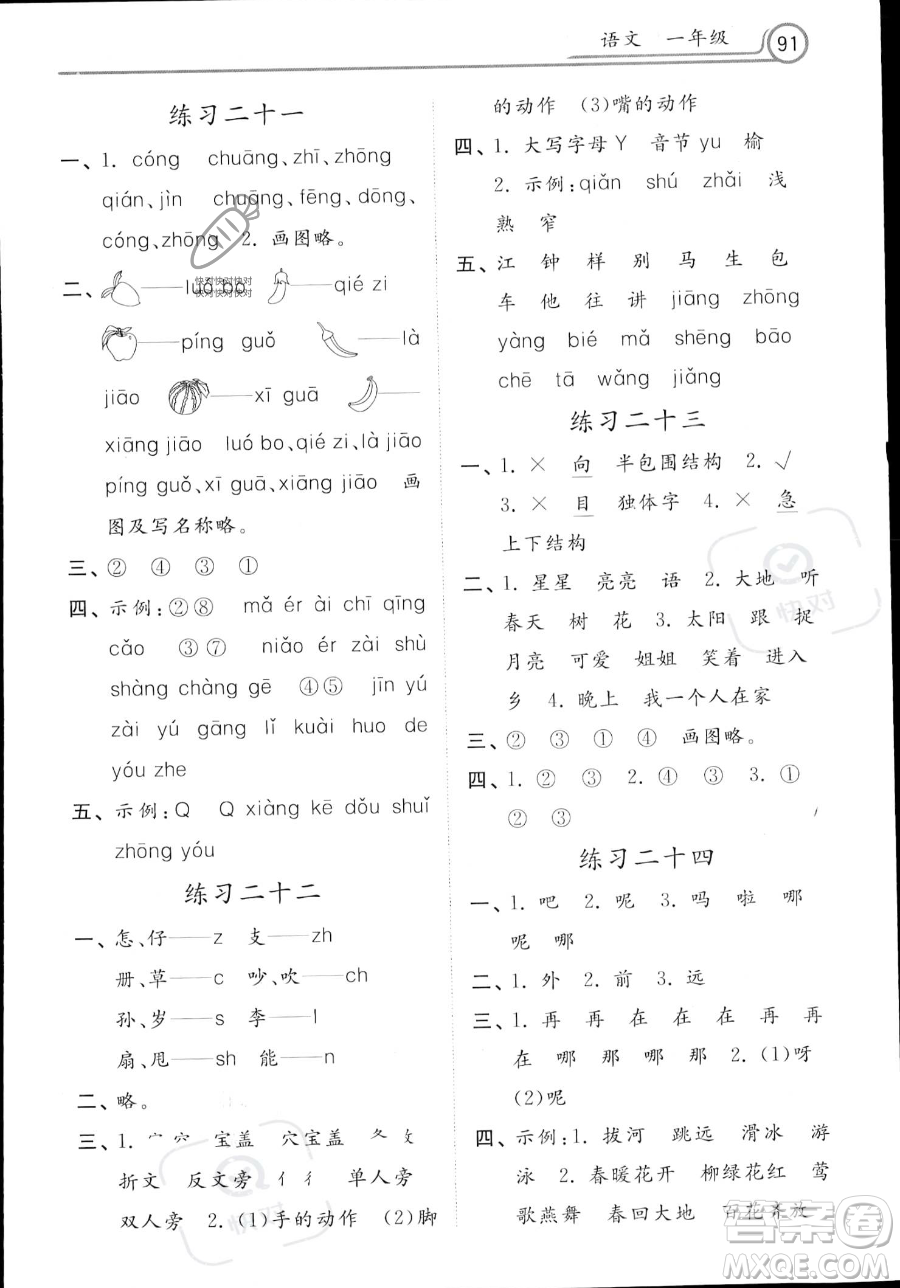 语文 一年级 91
练习二十一
一、1. cóng chuāng、zhī、zhōng
qián、jìn chuāng、fēng、dōng、
cóng、zhōng 2. 画图略。
二、——luó bo ——qié zi
快对快对快对快对
快对快对快对快对
——píng guǒ ——là
jiāo ——xī guā
xiāng jiāo luó bo、qié zi、là jiāo
píng guǒ、xī guā、xiāng jiāo 画
图及写名称略。
三、② ④ ③ ①
四、示例:②⑧ mǎ ér ài chī qīng
cǎo ③⑦ niǎo ér zài shù
shàng chàng gē ④⑤ jīn yú
zài yú gāng lǐ kuài huo de
yóu zhe
五、示例:Q Q xiàng kē dǒu shuǐ
zhōng yóu
练习二十二
一、怎、仔——z 支——zh
册、草——c 吵、吹——ch
孙、岁——s 李——l
扇、甩——sh 能——n
二、略。
三、1. 宀 穴 宝盖 穴宝盖 夂 攵
折文 反文旁 亻 彳 单人旁
双人旁 2. (1)手的动作 (2)脚
的动作 (3)嘴的动作
四、1. 大写字母Y 音节yu 榆
2. 示例:qiǎn shú zhǎi 浅
熟 窄
五、江 钟 样 别 马 生 包
车 他 往 讲 jiāng zhōng
yàng bié mǎ shēng bāo
chē tā wǎng jiǎng
练习二十三
一、1. × 向 半包围结构 2. √
3. × 目 独体字 4. × 急
上下结构
二、1. 星星 亮亮 语 2. 大地 听
春天 树 花 3. 太阳 跟 捉
月亮 可爱 姐姐 笑着 进入
乡 4. 晚上 我一个人在家
三、② ③ ① ④ 画图略。
四、1. ② ③ 2. ④ ③ 3. ①
② ③
练习二十四
一、1. 吧 2. 呢 3. 吗 啦 哪
呢 哪
二、1. 外 2. 前 3. 远
三、1. 再 再 在 在 在 再 再
在 哪 那 哪 那 2. (1)呀
(2)呢
四、示例:1. 拔河 跳远 滑冰 游
泳 2. 春暖花开 柳绿花红 莺
歌燕舞 春回大地 百花齐放
快对
快对
答案圈
MXQE.COM